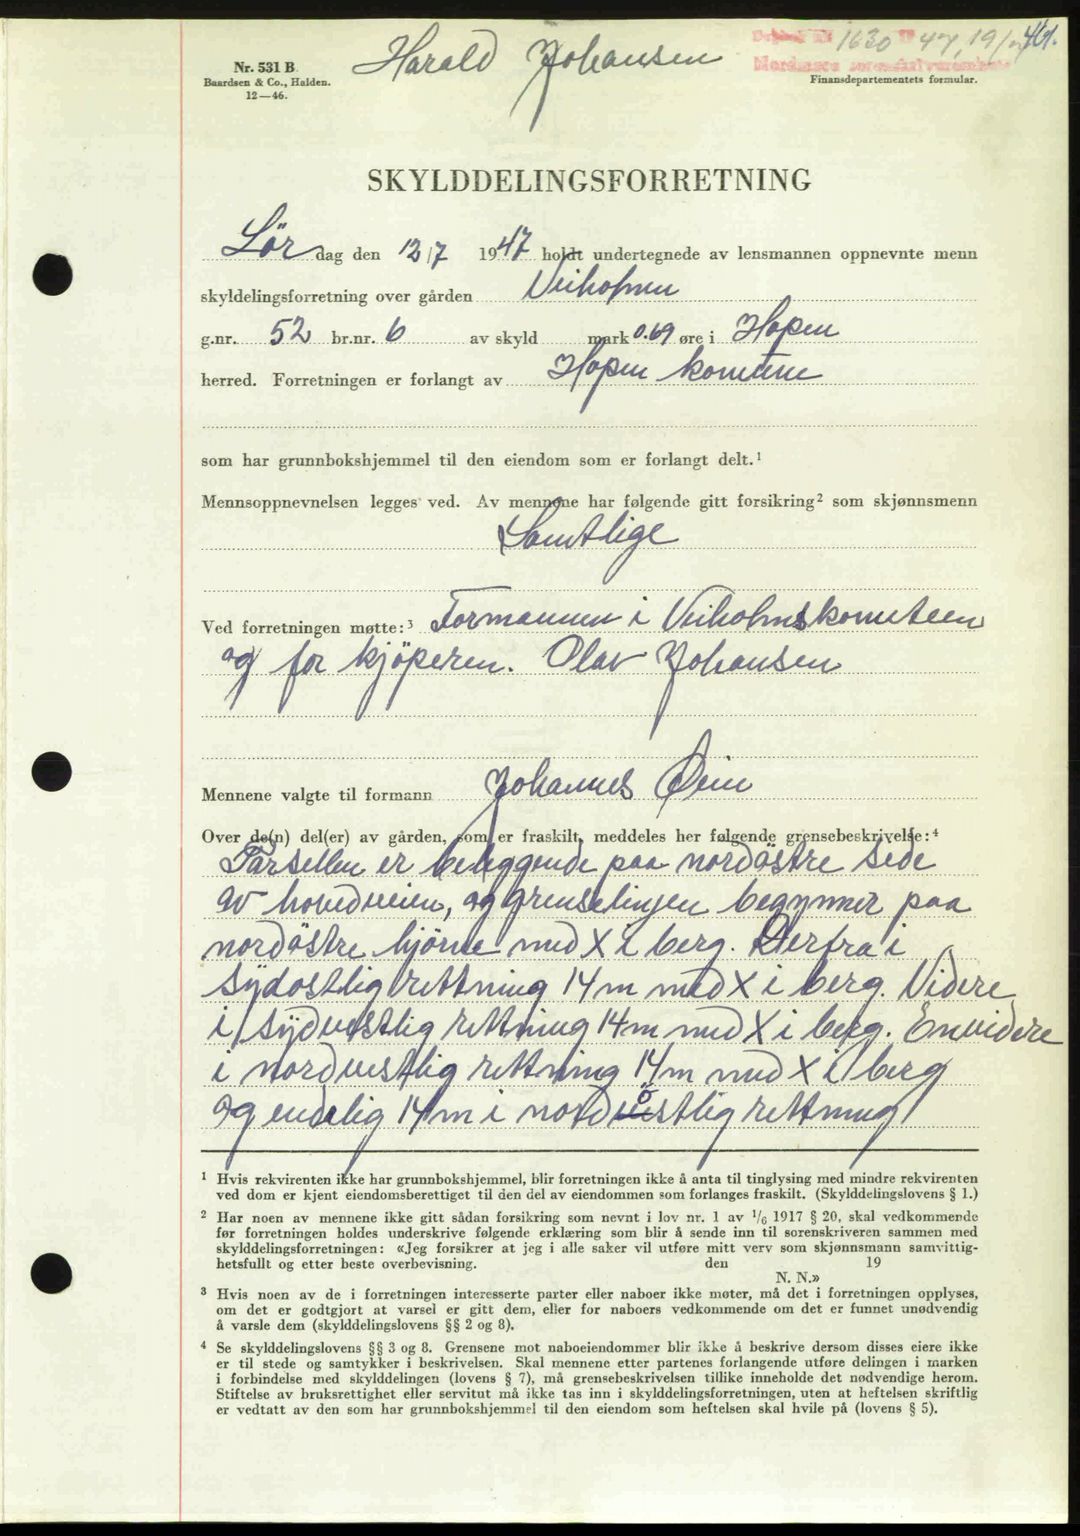 Harald Johansen
Dagbok nr. 1630 19 47, 19/7 461.
Nordmøre sorenskriverembete
Nr. 531 B
Baardsen & Co., Halden.
12—46.
Finansdepartementets formular.
SKYLDDELINGSFORRETNING
Lør dag den 12/7 1947 holdt undertegnede av lensmannen oppnevnte menn
skyldelingsforretning over gården Veiholmen
g.nr. 52 br.nr. 6 av skyld mark 0.69 øre i Hopen
herred. Forretningen er forlangt av Hopen komune
som har grunnbokshjemmel til den eiendom som er forlangt delt.¹
Mennsoppnevnelsen legges ved. Av mennene har følgende gitt forsikring² som skjønnsmenn
Samtlige
Ved forretningen møtte:³ Formannen i Veiholmskomiteen
og for kjöperen. Olav Johansen
Mennene valgte til formann Johannes Øien
Over de(n) del(er) av gården, som er fraskilt, meddeles her følgende grensebeskrivelse:⁴
Parsellen er beleggende paa nordöstre side
av hovedveien, og grenselinjen begynner paa
nordöstre hjörne med X i berg. Derfra i
sydostlig rettning 14 m med X i berg. Videre
i sydvestlig rettning 14 m med X i berg. Envidere
i nordvestlig rettning 14 m med X i berg
og endelig 14 m i nordöstlig rettning
¹ Hvis rekvirenten ikke har grunnbokshjemmel, blir forretningen ikke å anta til tinglysing med mindre rekvirenten
ved dom er kjent eiendomsberettiget til den del av eiendommen som forlanges fraskilt. (Skylddelingslovens § 1.)
² Har noen av mennene ikke gitt sådan forsikring som nevnt i lov nr. 1 av ¹/₆ 1917 § 20, skal vedkommende
før forretningen holdes underskrive følgende erklæring som blir å sende inn til sorenskriveren sammen med
skylddelingsforretningen: «Jeg forsikrer at jeg i alle saker vil utføre mitt verv som skjønnsmann samvittig-
hetsfullt og etter beste overbevisning. den 19
N. N.»
³ Hvis noen av de i forretningen interesserte parter eller naboer ikke møter, må det i forretningen opplyses,
om det er godtgjort at varsel er gitt dem, eller for naboers vedkommende om det er funnet unødvendig
å varsle dem (skylddelingslovens §§ 2 og 8).
⁴ Se skylddelingslovens §§ 3 og 8. Grensene mot naboeiendommer blir ikke å beskrive dersom disses eiere ikke
er til stede og samtykker i beskrivelsen. Skal mennene etter partenes forlangende utføre delingen i marken
i forbindelse med skylddelingen (lovens § 7), må grensebeskrivelsen tillike inneholde det nødvendige herom.
Stiftelse av bruksrettighet eller servitut må ikke tas inn i skylddelingsforretningen, uten at heftelsen skriftlig
er vedtatt av den som har grunnbokshjemmel til den eiendom som heftelsen skal hvile på (lovens § 5).